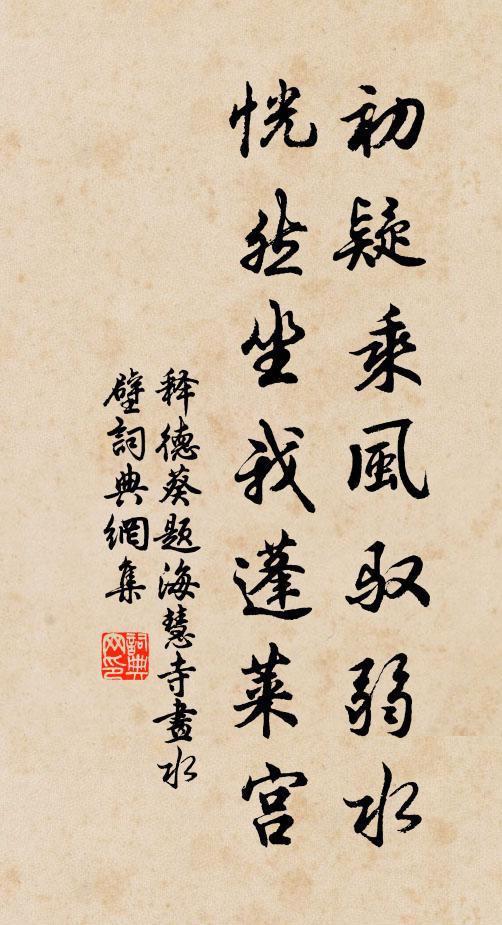 初疑乘風馭弱水
恍然坐我蓬萊宮
释德葵题海慧寺畫水
壁詞典網集
詞典
网印